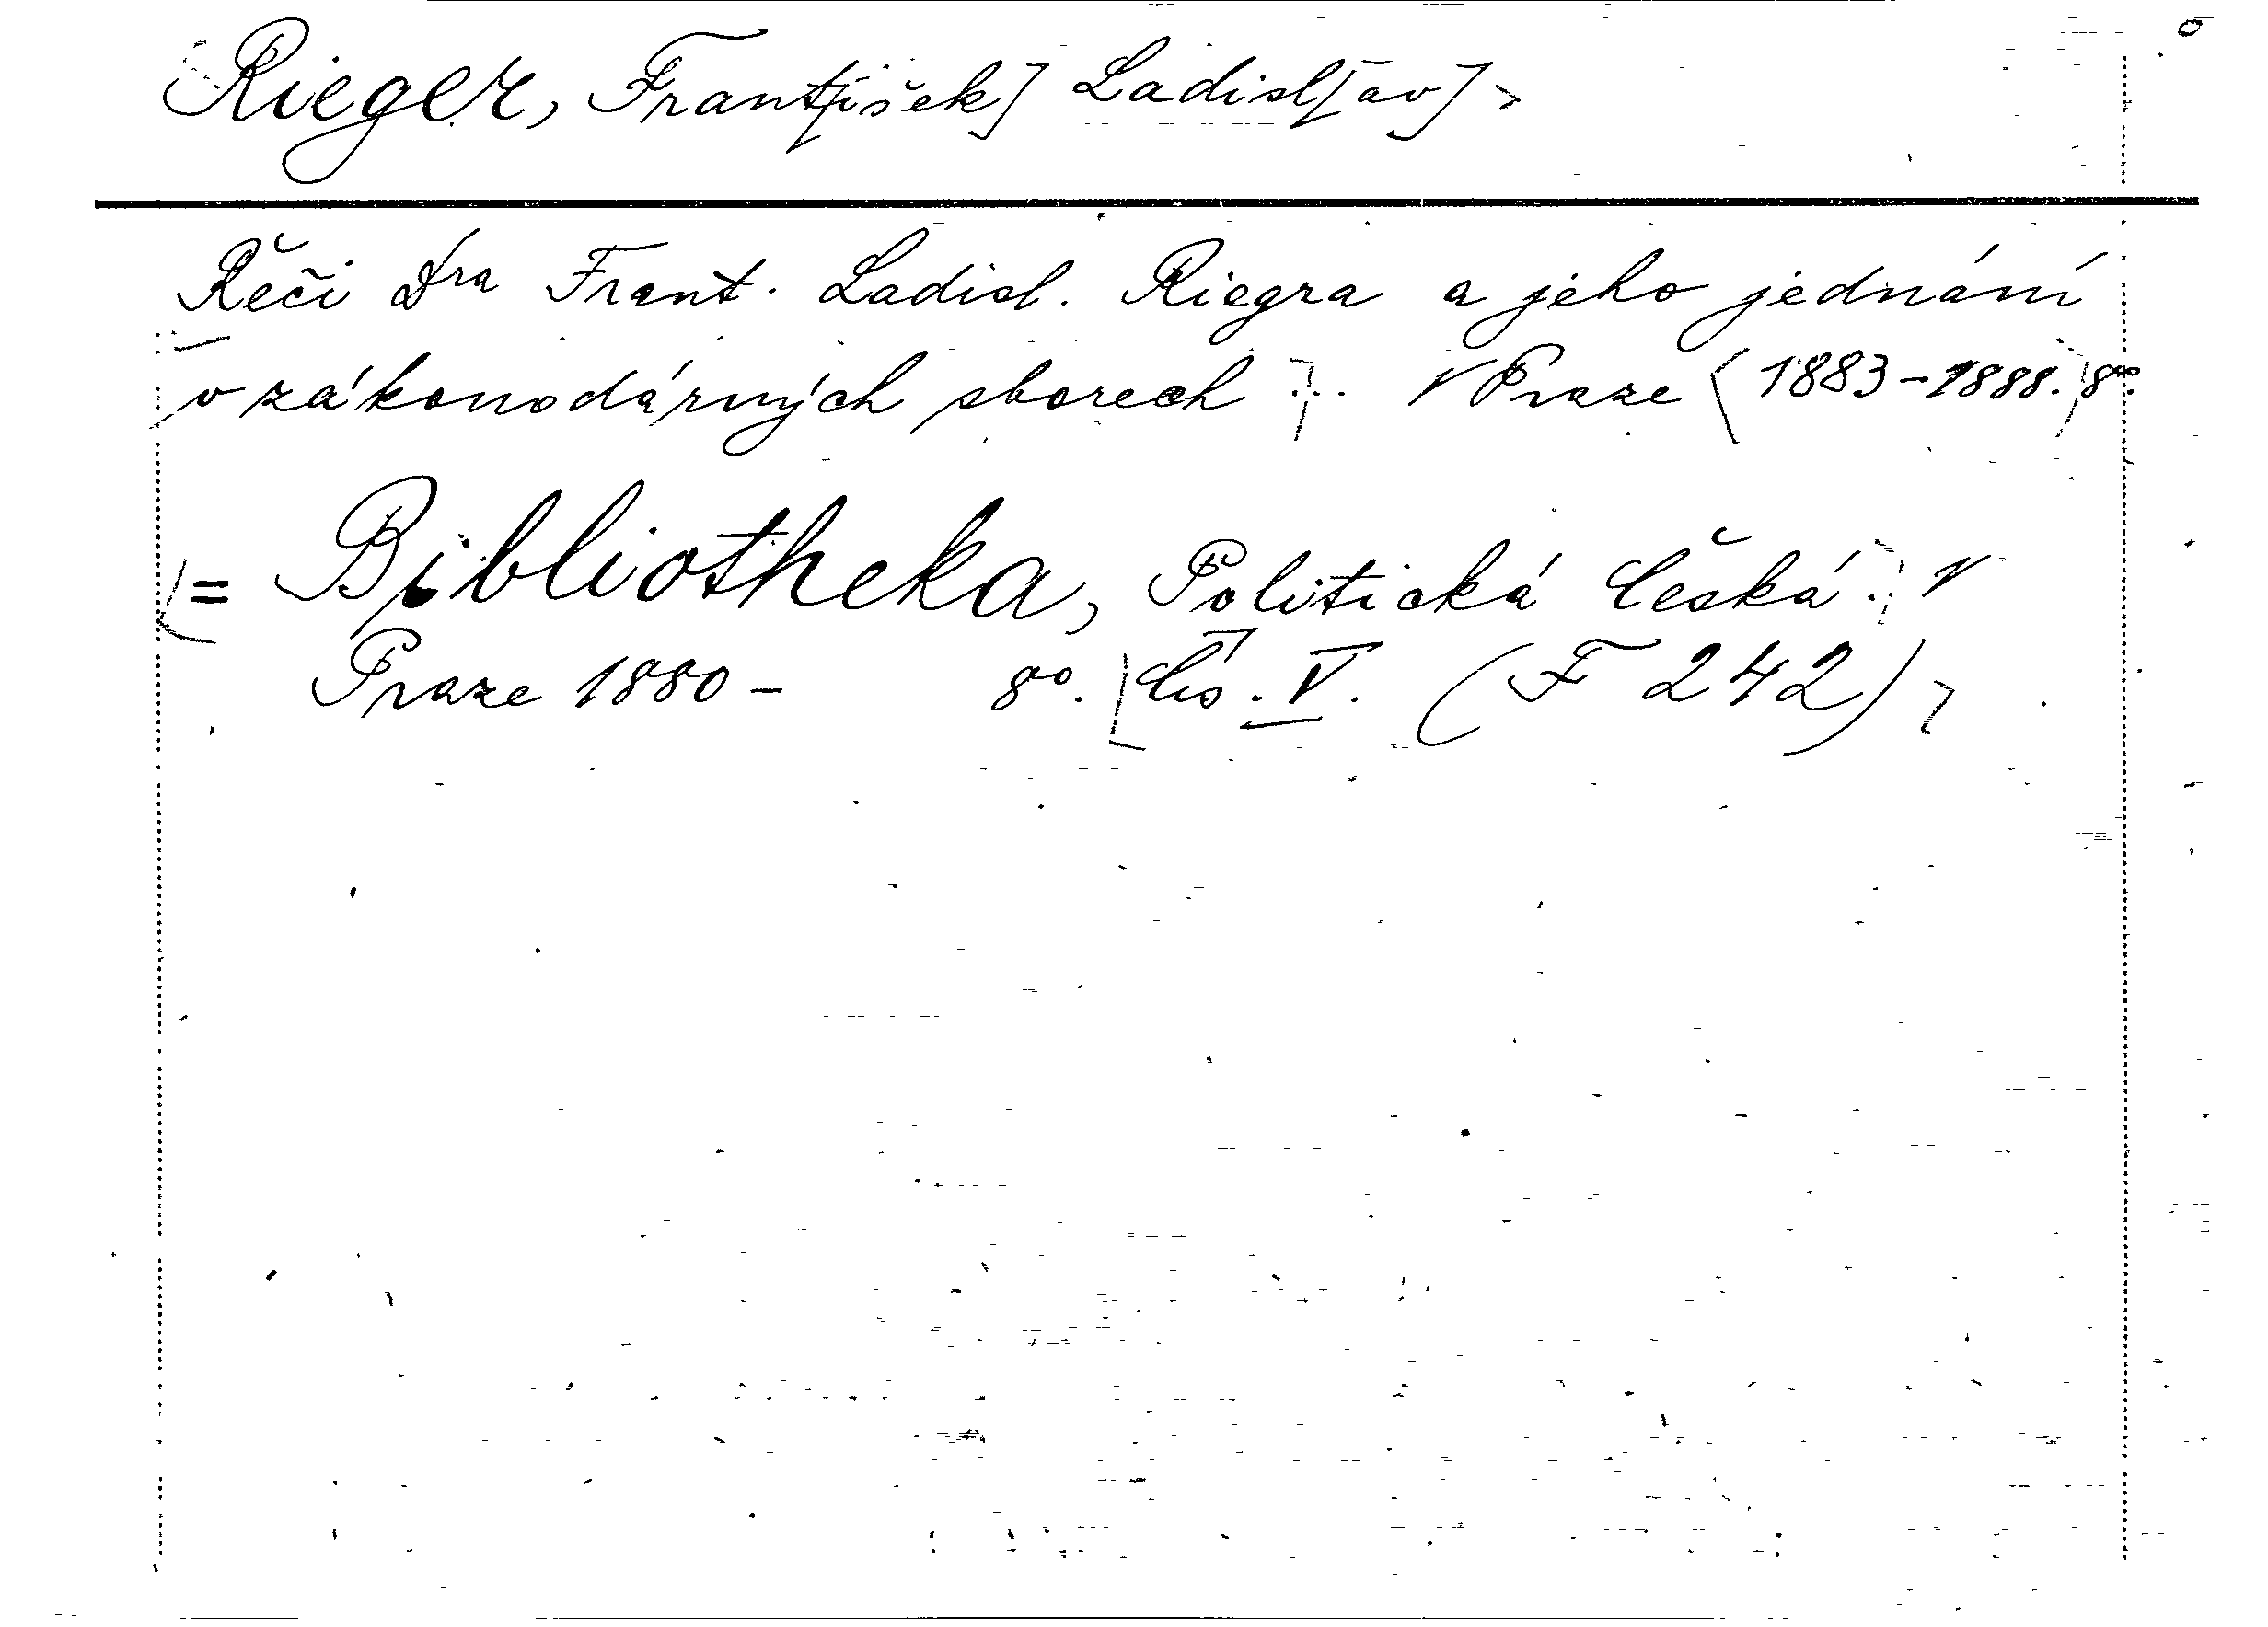 Rieger, Frant[išek] Ladisl[av]
Řeči Dra Frant. Ladisl. Riegra a jeho jednání
v zákonodárných sborech ... V Praze 1883-1888. 8°.
= Bibliotheka, Politická česká. V
Praze 1880- 8°. čís. V. (F 242)